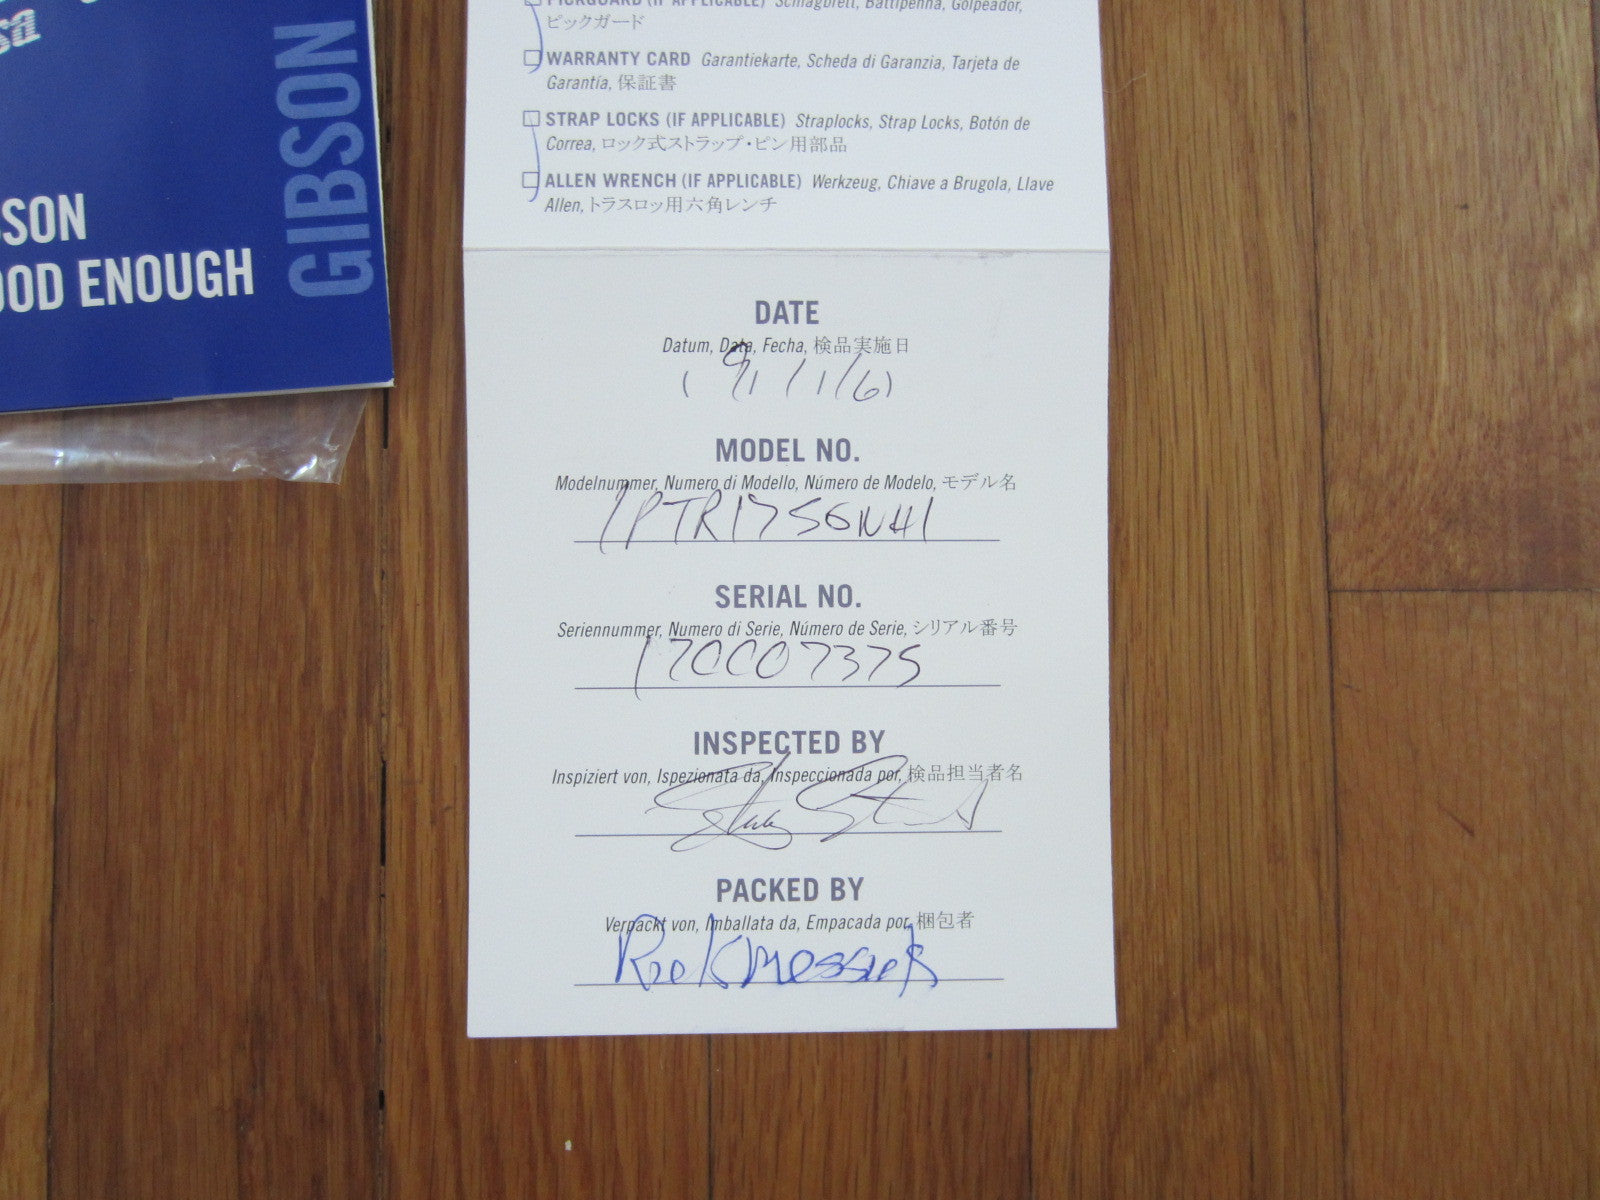 sa
GIBSON
SON
OOD ENOUGH
PICKGUARD (IF APPLICABLE) Schlagbrett, Battipenna, Golpeador,
ピックガード
WARRANTY CARD Garantiekarte, Scheda di Garanzia, Tarjeta de
Garantía, 保証書
STRAP LOCKS (IF APPLICABLE) Straplocks, Strap Locks, Botón de
Correa, ロック式ストラップ・ピン用部品
ALLEN WRENCH (IF APPLICABLE) Werkzeug, Chiave a Brugola, Llave
Allen, トラスロッ用六角レンチ
DATE
Datum, Data, Fecha, 検品実施日
MODEL NO.
Modelnummer, Numero di Modello, Número de Modelo, モデル名
LPTR17S6NH1
SERIAL NO.
Seriennummer, Numero di Serie, Número de Serie, シリアル番号
170007375
INSPECTED BY
Inspiziert von, Ispezionata da, Inspeccionada por, 検品担当者名
PACKED BY
Verpackt von, Imballata da, Empacada por, 梱包者